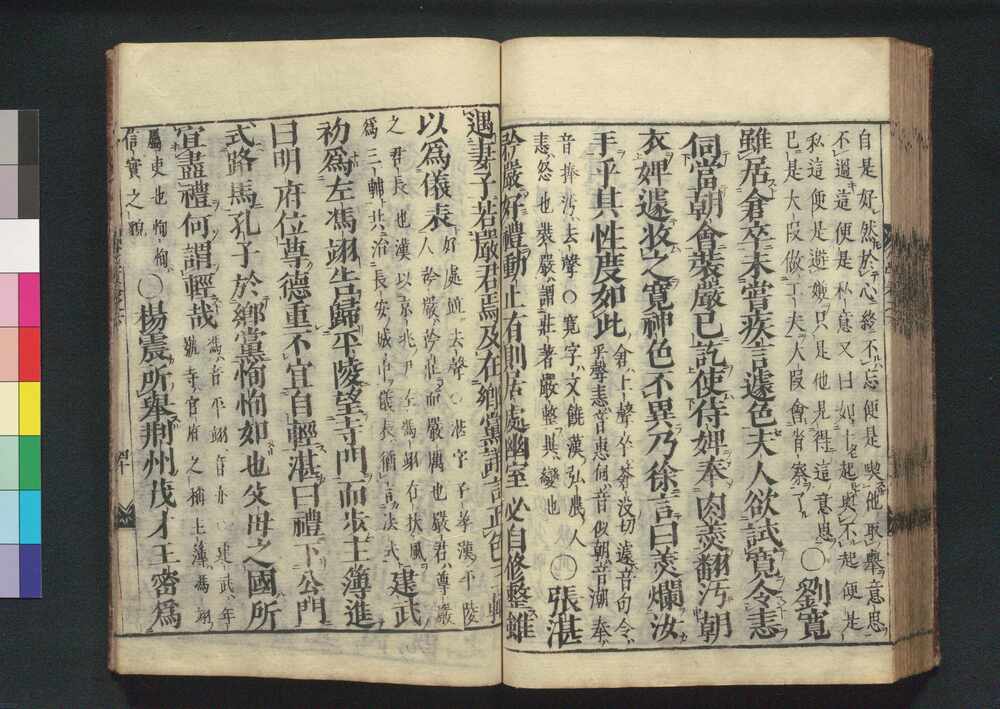 自是好然於心終不忘便是喫他取擧意思
不過這便是私意又曰如十起與不起便是
私這便是避嫌只是他見得這意思
已是大段做工夫大段會省察了○劉寬
雖居倉卒未嘗疾言遽色夫人欲試寬令恚
伺當朝會裝嚴已訖使侍婢奉肉羹翻汚朝
衣婢遽收之寬神色不異乃徐言曰羹爛汝
手乎其性度如此
倉上聲卒
没切遽音句令
平聲恚音惠伺音似朝音潮奉
音捧汚去聲○寬字文饒漢弘農人
恚怒也裝嚴謂莊著嚴整異變也
○張湛
矜嚴好禮動止有則居處幽室必自修整雖
遇妻子若嚴君焉及在鄉黨詳言正色三輔
以爲儀表
好處並去聲○湛字子孝漢平陵
人矜嚴矜莊而嚴厲也嚴君尊嚴
之君長也漢以京兆尹左馮翊右扶風
爲三輔共治長安城中儀表猶言法式
建武
初爲左馮翊告歸平陵望寺門而步主簿進
曰明府位尊德重不宜自輕湛曰禮下公門
式路馬孔子於鄉黨恂恂如也父母之國所
宜盡禮何謂輕哉
馮音平翊音亦○建武年
號寺官府之稱主簿馮翊
屬吏也恂恂
信實之貌
○楊震所舉荊州茂才王密爲
四十